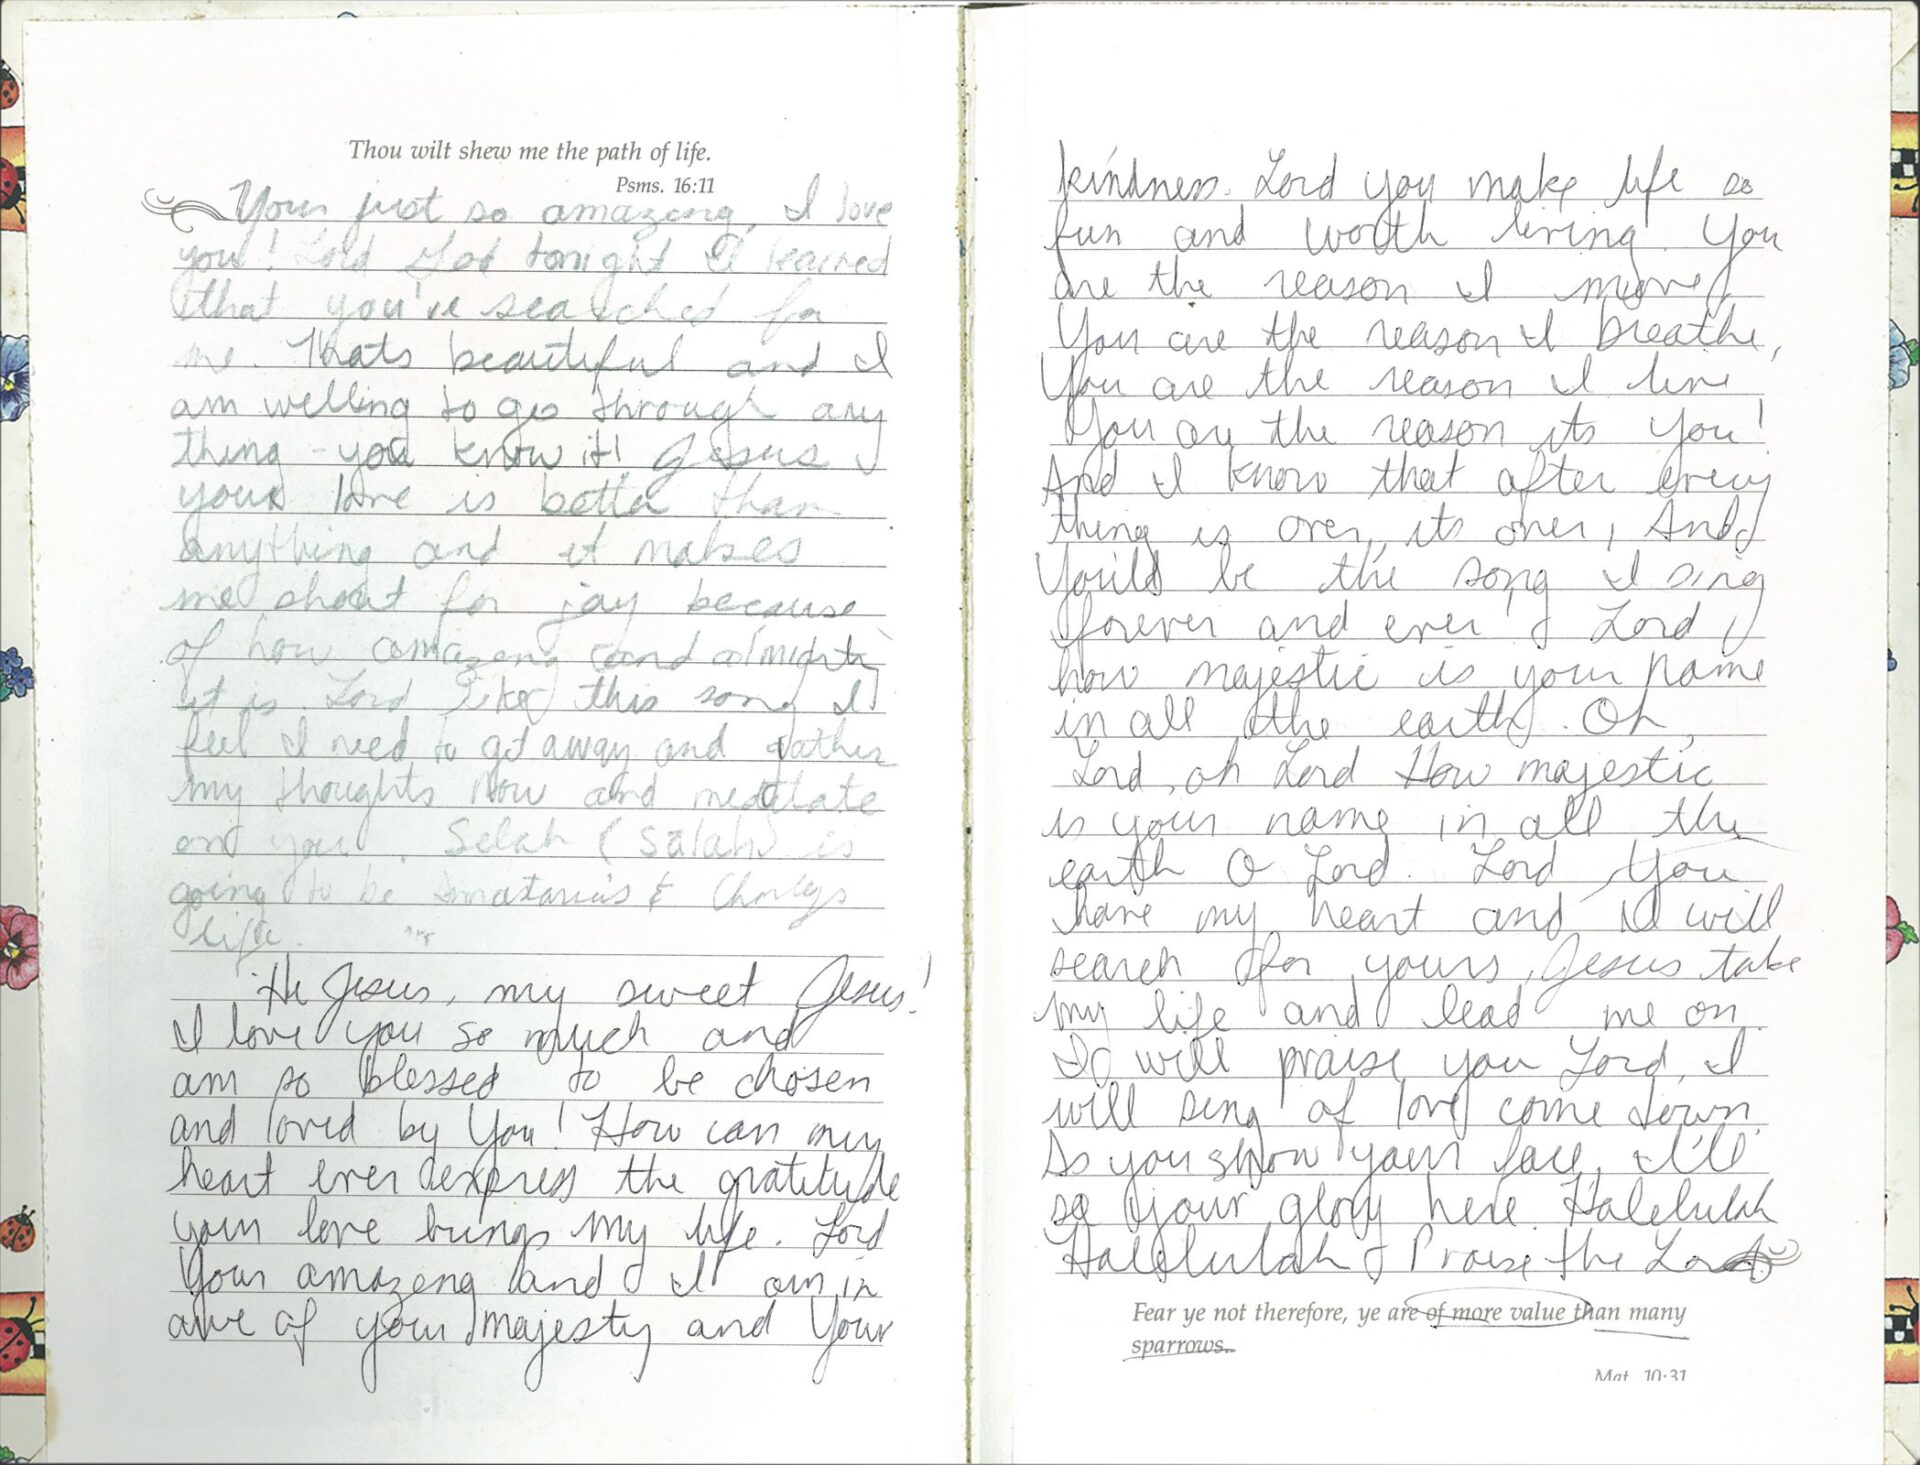 Thou wilt shew me the path of life.
Psms. 16:11
Your just so amazing, I love
you! Lord God tonight I learned
that you've searched for
me. Thats beautiful and I
am welling to go through any
thing - you know it! Jesus
your love is better than
anything and it makes
me shout for joy because
of how amazeng and almighty
it is. Lord like this song I
feel I need to get away and gather
my thoughts now and meditate
on you. Selah (Salah) is
going to be & Charlys
life.
Hi Jesus, my sweet Jesus!
I love you so much and
am so blessed to be chosen
and loved by You! How can my
heart ever express the gratitude
your love brings my life. Lord
Your amazeng and I am in
awe of your majesty and Your
kindness. Lord you make life so
fun and worth living. You
are the reason I move,
You are the reason I breathe,
You are the reason I live
You are the reason its You!
And I know that after every
thing is over, its over, And
You'll be the song I sing
forever and ever! Lord,
how majestic is your name
in all the earth. Oh
Lord, oh Lord How majestic
is your name in all the
earth O Lord. Lord You
have my heart and I will
search for yours, Jesus take
my life and lead me on.
I will praise you Lord, I
will sing of love come down.
As you show your face, I'll
se your glory here. Halelulah
Halelulah Praise the Lord
Fear ye not therefore, ye are of more value than many
sparrows.
Mat. 10:31